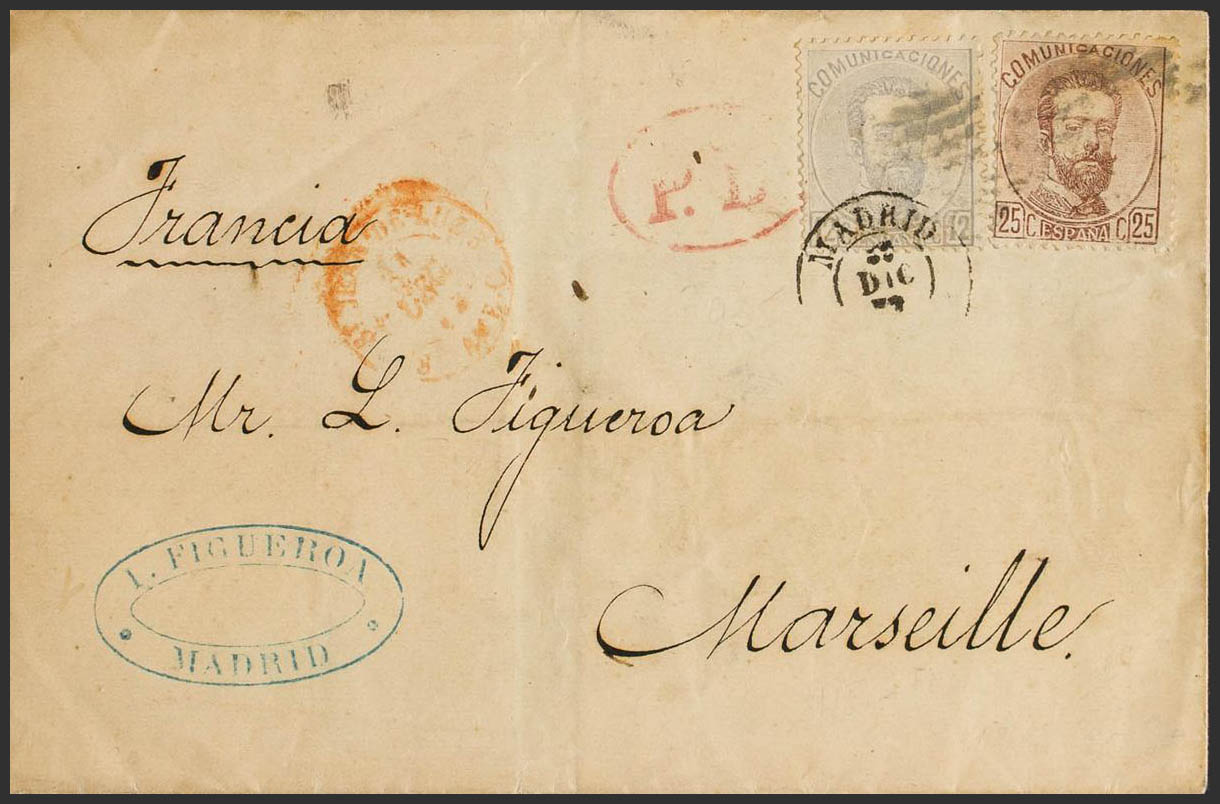 COMUNICACIONES
12
COMUNICACIONES
25 C. ESPAÑA C. 25
P. D
MADRID
DIC
Francia
Mr. L. Figueroa
I. FIGUEROA
MADRID
Marseille.